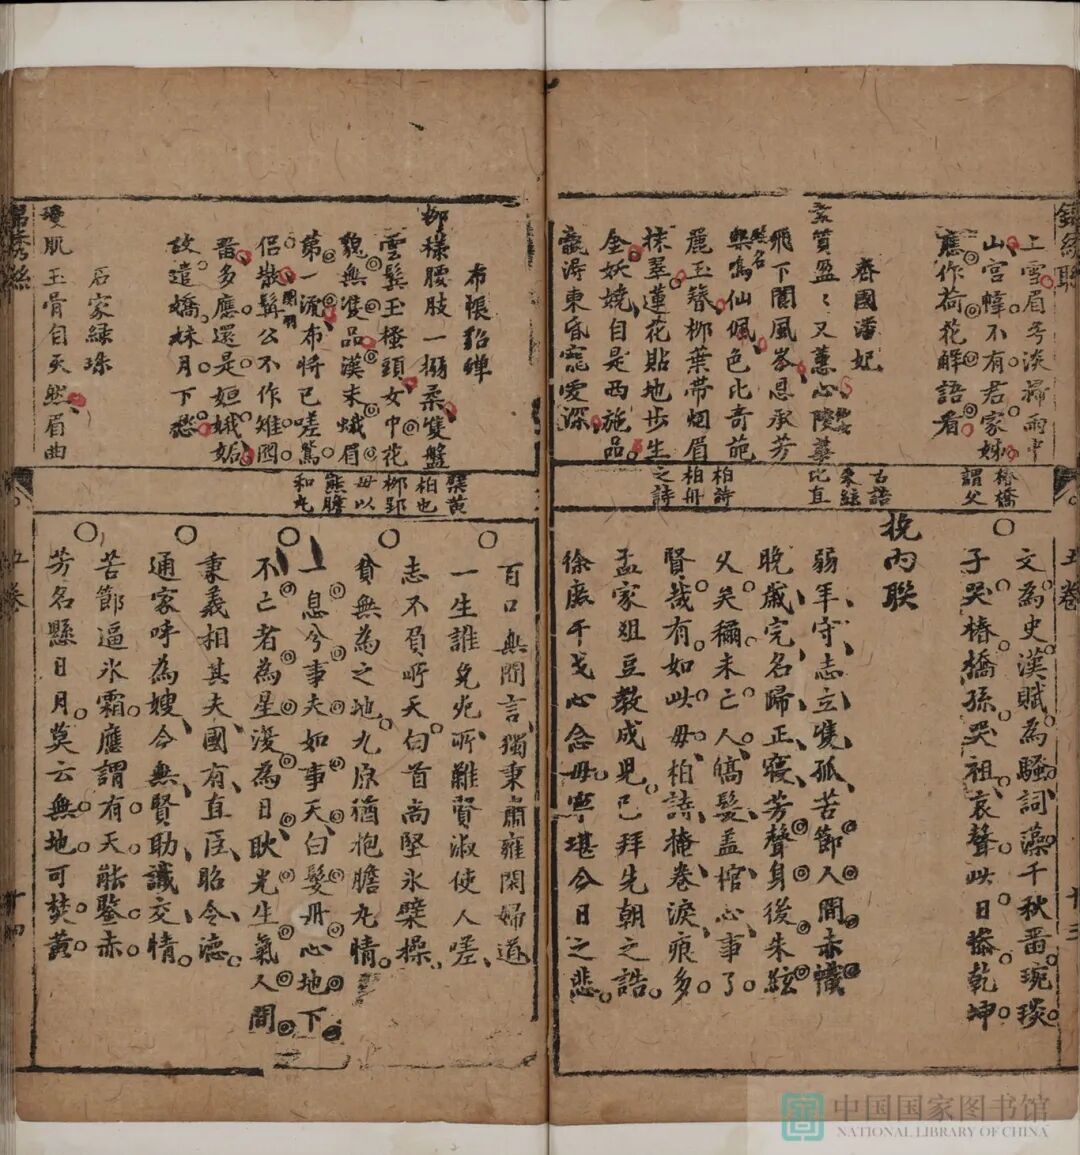 上雪眉号淡掃雨中
山宫幃不有君家姊
應作荷花解語看
齊國潘妃
素質盈盈又蕙心陵華
飛下閬風岑恩承芳
樂鳴仙佩色比奇葩
麗玉簪柳葉帶烟眉
抹翠蓮花貼地步生
金妖嬈自是西施品
贏得東昏寵愛深
布帳貂蟬
柳様腰肢一搦柔雙盤
雲髩玉搔頭女中花
貌無雙品漢末蛾眉
第一流布將已嗟篤
侣散髯公不作雉
關羽
啚多應還是姮娥妬
故遣嬌妹月下愁
石家緑珠
瓊肌玉骨自天然眉曲
椿橋
謂父
古語
朱絃
比直
柏詩
柏舟
之詩
檗黄
柏也
柳郢
母以
熊膽
和丸
文為史漢賦為騷詞藻千秋啚琬琰
子哭椿橋孫哭祖哀聲此日㥽乾坤
挽丙聯
弱年守志立隻孤苦節人間赤幟
晚歲完名歸正寢芳聲身後朱絃
乆矣稱未亡人縞髮盖棺心事了
賢哉有如此母柏詩掩卷淚痕多
孟家俎豆教成兒已拜先朝之誥
徐庶干戈心念母寧堪今日之悲
百口無間言獨秉肅雍閑婦道
一生誰免死所難賢淑使人嗟
志不負所天白首尚堅氷檗操
貧無為之地九原猶抱膽丸情
一息兮事夫如事天白髮丹心地下
不亡者為星漫為日耿光生氣人間
秉義相其夫國有直臣昭令德
通家呼為嫂今無賢助識交情
苦節逼氷霜應謂有天能鑒赤
芳名懸日月莫云無地可焚黄
錦綉聯
五卷
十三
錦綉聯
五卷
十四
中国国家图书馆
NATIONAL LIBRARY OF CHINA